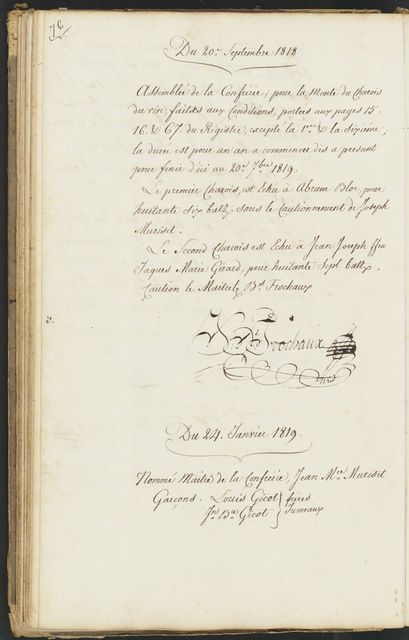 78
Du 20e. Septembre 1818
Assemblée de la Confrérie; pour la Monte du Charois
du vin, faittes aux Conditions, portées aux pages 15.
16. & 67 du Régistre, excepté la 1ere. & la Sixième;
la durée est pour un an a commencer dès a présent
pour finir d'ici au 20e. 7bre 1819.
Le premier Charois, est Echu à Abram Bloc, pour
huitante Six batz, sous le Cautionnement de Joseph
Muriset.
Le Second Charois est Echu à Jean Joseph ffeu
Jaques Marie Girard, pour huitante Sept batz.
Caution le Maître Bd. Frochaux
Frochaux
Du 24. Janvier 1819.
Nommé Maitre de la Confrérie, Jean Mce. Muriset
Garçons. Louis Gicot } frères
Jn. Bte Gicot } Jumeaux